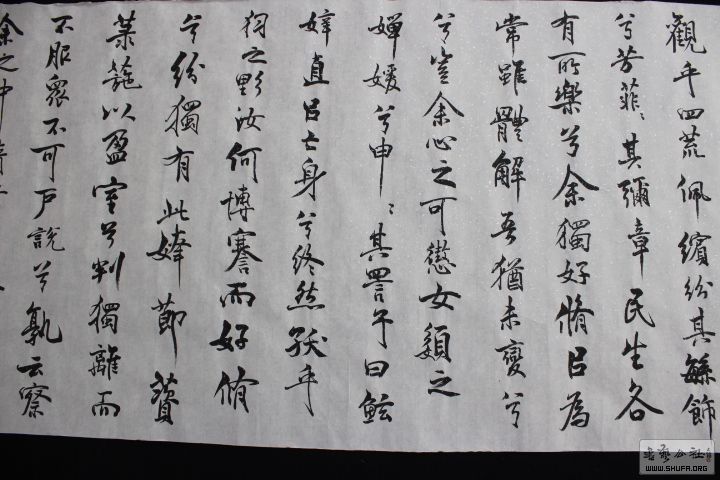 觀乎四荒佩繽紛其緐飾
兮芳菲々其彌章民生各
有所樂兮余獨好脩㠯為
常雖體解吾猶未變兮
兮豈余心之可懲女嬃之
嬋媛兮申々其詈予曰鮌
婞直㠯亡身兮終然殀乎
羽之野汝何博謇而好脩
兮紛獨有此姱節薋
菉葹以盈室兮判獨離而
不服眾不可戶說兮孰云察
余之中情
书艺公社
WWW.SHUFA.ORG